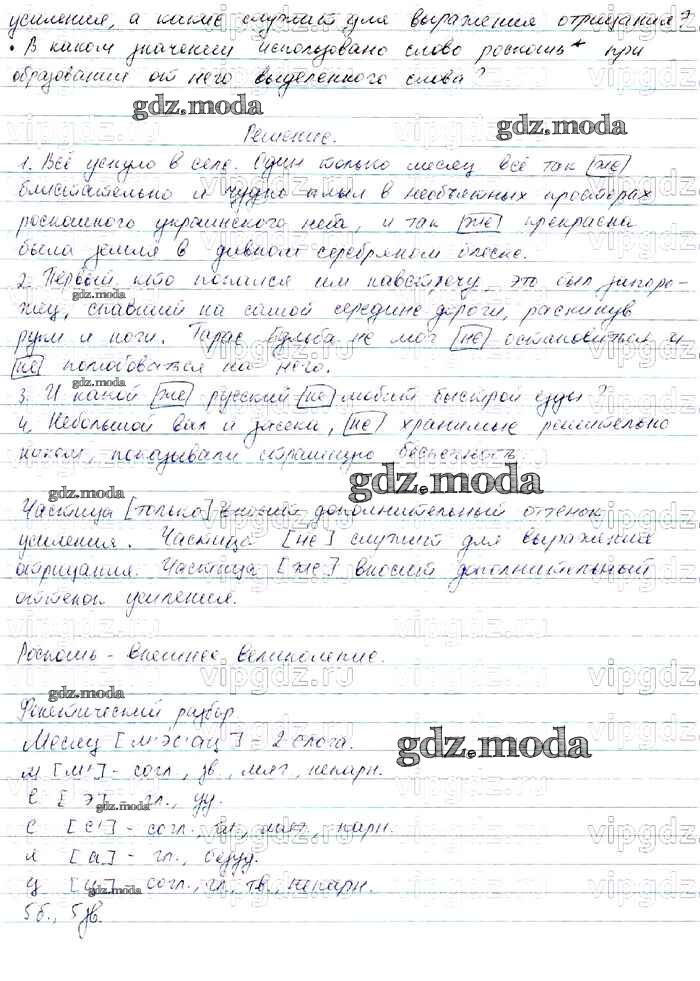 усиления, а какие служит для выражения отрицания?
• В каком значении использовано слово роскошь при
образовании от него выделенного слова?
gdz.moda
gdz.moda
Решение.
1. Всё уснуло в селе. Один только месяц всё так [же]
блистательно и чудно плыл в необъятных просторах
роскошного украинского неба, и так [же] прекрасна
была земля в дивном серебряном блеске.
2. Первый, кто попался им навстречу, это был запоро-
gdz.moda
жец, спавший на самой середине дороги, раскинув
руки и ноги. Тарас Бульба не мог [не] остановиться и
[не] полюбоваться на него.
gdz.moda
3. И какой [же] русский [не] любит быстрой езды?
4. Небольшой вал и засеки, [не] хранимые решительно
никем, показывали страшную беспечность.
gdz.moda
gdz.moda
Частица [только] вносит дополнительный оттенок
усиления. Частица [не] служит для выражение
отрицания. Частица [же] вносит дополнительный
gdz.moda
оттенок усиления.
Роскошь - внешнее великолепие.
gdz.moda
Фонетический разбор.
Месяц [м'эс'ац] - 2 слога.
gdz.moda
м [м'] - согл., зв., мяг., непарн.
е [э] - гл., уд.
gdz.moda
с [с'] - согл., гл., мяг., парн.
я [а] - гл., безуд.
ц [ц] - согл., гл., тв., непарн.
gdz.moda
5 б., 5 зв.
vipgdz.ru